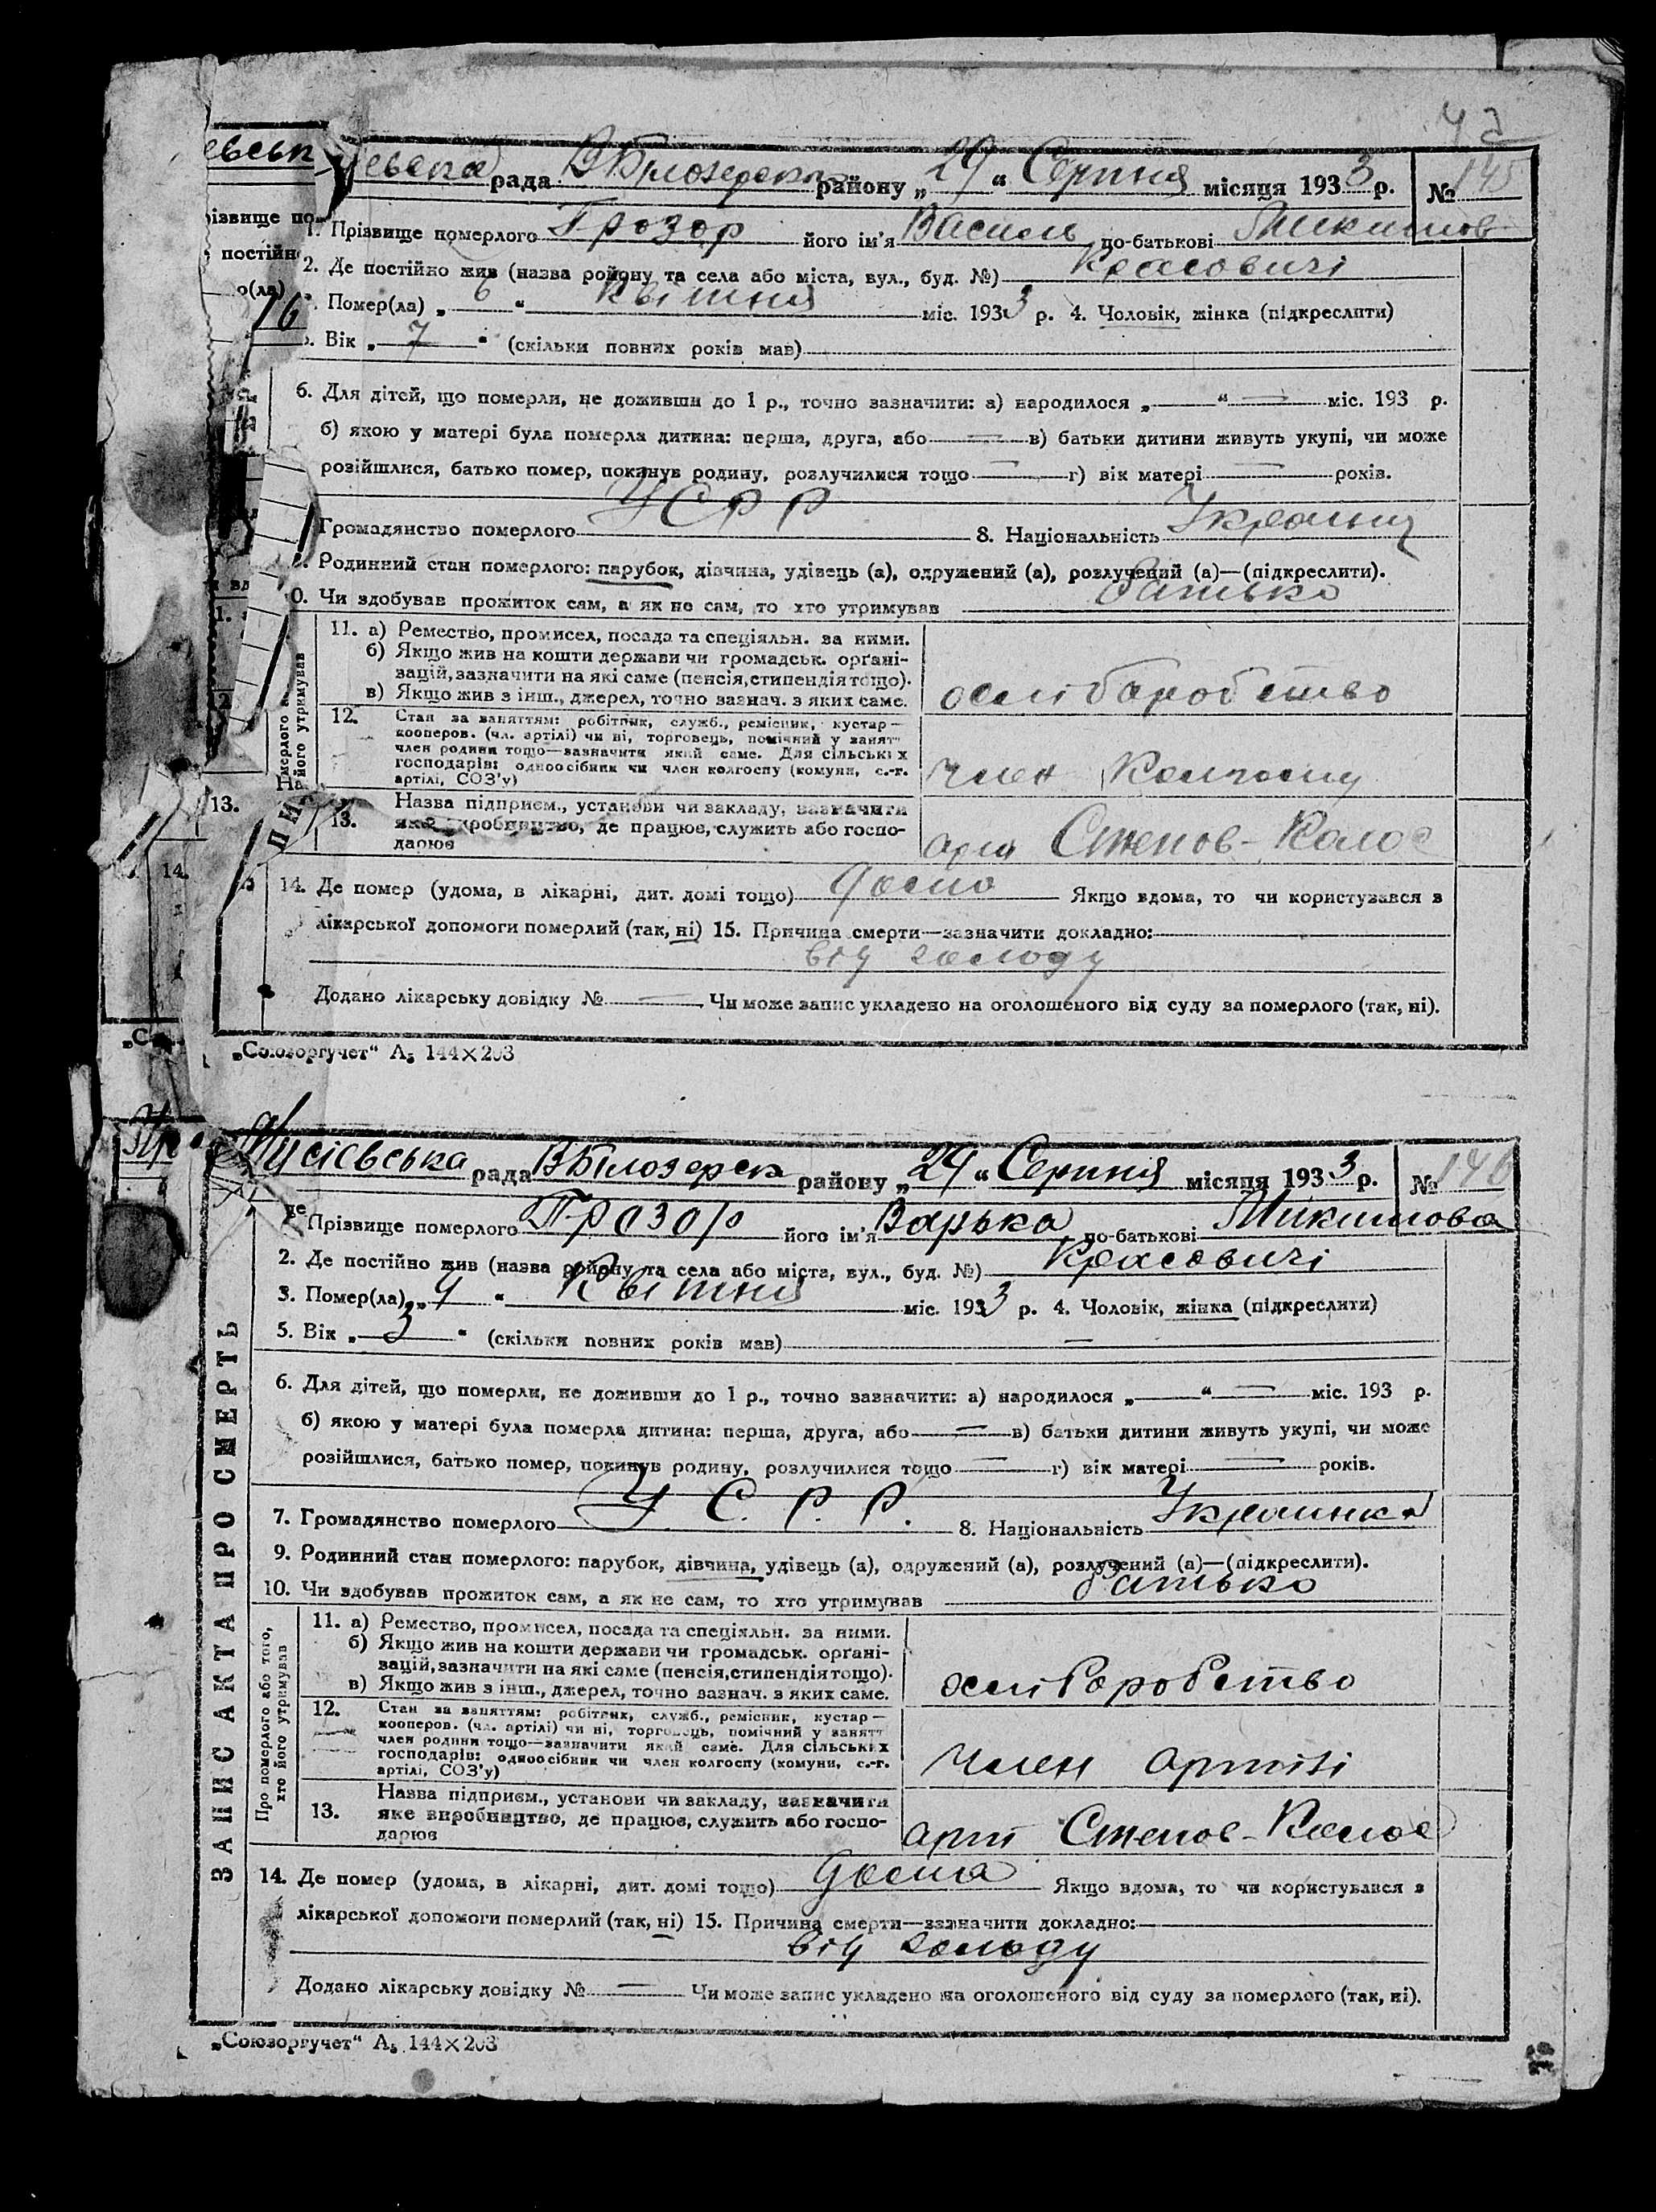 рада В Білозерськ району „29“ Серпня місяця 1933 р. № 145
1. Прізвище померлого Прозор його ім'я Василь по-батькові Микитов
2. Де постійно жив (назва ройону та села або міста, вул., буд. №) Красовичі
Помер(ла) „6“ Квітня міс. 1933 р. 4. Чоловік, жінка (підкреслити)
Вік „7“ (скільки повних років мав)
6. Для дітей, що померли, не доживши до 1 р., точно зазначити: а) народилося „—“ — міс. 193 р.
б) якою у матері була померла дитина: перша, друга, або — в) батьки дитини живуть укупі, чи може
розійшлися, батько помер, покинув родину, розлучилися тощо — г) вік матері — років.
Громадянство померлого УСРР 8. Національність Украинц
Родинний стан померлого: парубок, дівчина, удівець (а), одружений (а), розлучений (а)—(підкреслити).
0. Чи здобував прожиток сам, а як не сам, то хто утримував батько
11. а) Ремество, промисел, посада та спеціяльн. за ними.
б) Якщо жив на кошти держави чи громадськ. орґані-
зацій, зазначити на які саме (пенсія, стипендія тощо).
в) Якщо жив з інш., джерел, точно зазнач. з яких саме.
хліборобство
12. Стан за заняттям: робітник, служб., ремісник, кустар—
кооперов. (чл. артілі) чи ні, торговець, помічний у занятт
член родини тощо—зазначити який саме. Для сільських
господарів: одноосібник чи член колгоспу (комуни, с.-г.
артілі, СОЗ'у)
член колгоспу
13. Назва підприєм., установи чи закладу, зазначити
яке виробництво, де працює, служить або госпо-
дарює
Степов-Колос
14. Де помер (удома, в лікарні, дит. домі тощо) дома Якщо вдома, то чи користувався з
лікарської допомоги померлий (так, ні) 15. Причина смерти—зазначити докладно:
від голоду
Додано лікарську довідку № — Чи може запис укладено на оголошеного від суду за померлого (так, ні).
„Союзоргучет“ А5 144×203
Мусієвська рада В Білозерск району „29“ Серпня місяця 1933 р. № 146
Прізвище померлого Прозор його ім'я Варька по-батькові Микитова
2. Де постійно жив (назва ройону та села або міста, вул., буд. №) Красовичі
3. Помер(ла) „4“ Квітня міс. 1933 р. 4. Чоловік, жінка (підкреслити)
5. Вік „3“ (скільки повних років мав) —
6. Для дітей, що померли, не доживши до 1 р., точно зазначити: а) народилося „—“ — міс. 193 р.
б) якою у матері була померла дитина: перша, друга, або — в) батьки дитини живуть укупі, чи може
розійшлися, батько помер, покинув родину, розлучилися тощо — г) вік матері — років.
7. Громадянство померлого У.С.Р.Р. 8. Національність Украинка
9. Родинний стан померлого: парубок, дівчина, удівець (а), одружений (а), розлучений (а)—(підкреслити).
10. Чи здобував прожиток сам, а як не сам, то хто утримував батько
ЗАПИС АКТА ПРО СМЕРТЬ
Про померлого або того,
хто його утримував
11. а) Ремество, промисел, посада та спеціяльн. за ними.
б) Якщо жив на кошти держави чи громадськ. орґані-
зацій, зазначити на які саме (пенсія, стипендія тощо).
в) Якщо жив з інш., джерел, точно зазнач. з яких саме.
хліборобство
12. Стан за заняттям: робітник, служб., ремісник, кустар—
кооперов. (чл. артілі) чи ні, торговець, помічний у занятт
член родини тощо—зазначити який саме. Для сільських
господарів: одноосібник чи член колгоспу (комуни, с.-г.
артілі, СОЗ'у)
член артілі
13. Назва підприєм., установи чи закладу, зазначити
яке виробництво, де працює, служить або госпо-
дарює
арт Степов-Колос
14. Де помер (удома, в лікарні, дит. домі тощо) дома Якщо вдома, то чи користувався з
лікарської допомоги померлий (так, ні) 15. Причина смерти—зазначити докладно:
від голоду
Додано лікарську довідку № — Чи може запис укладено на оголошеного від суду за померлого (так, ні).
„Союзоргучет“ А5 144×203